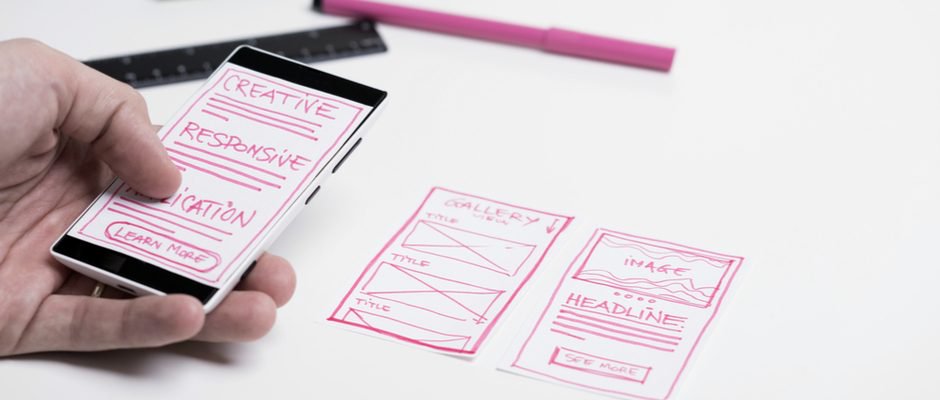 CREATIVE
RESPONSIVE
APPLICATION
LEARN MORE
GALLERY
VIEW
TITLE
TITLE
TITLE
IMAGE
HEADLINE
SEE MORE